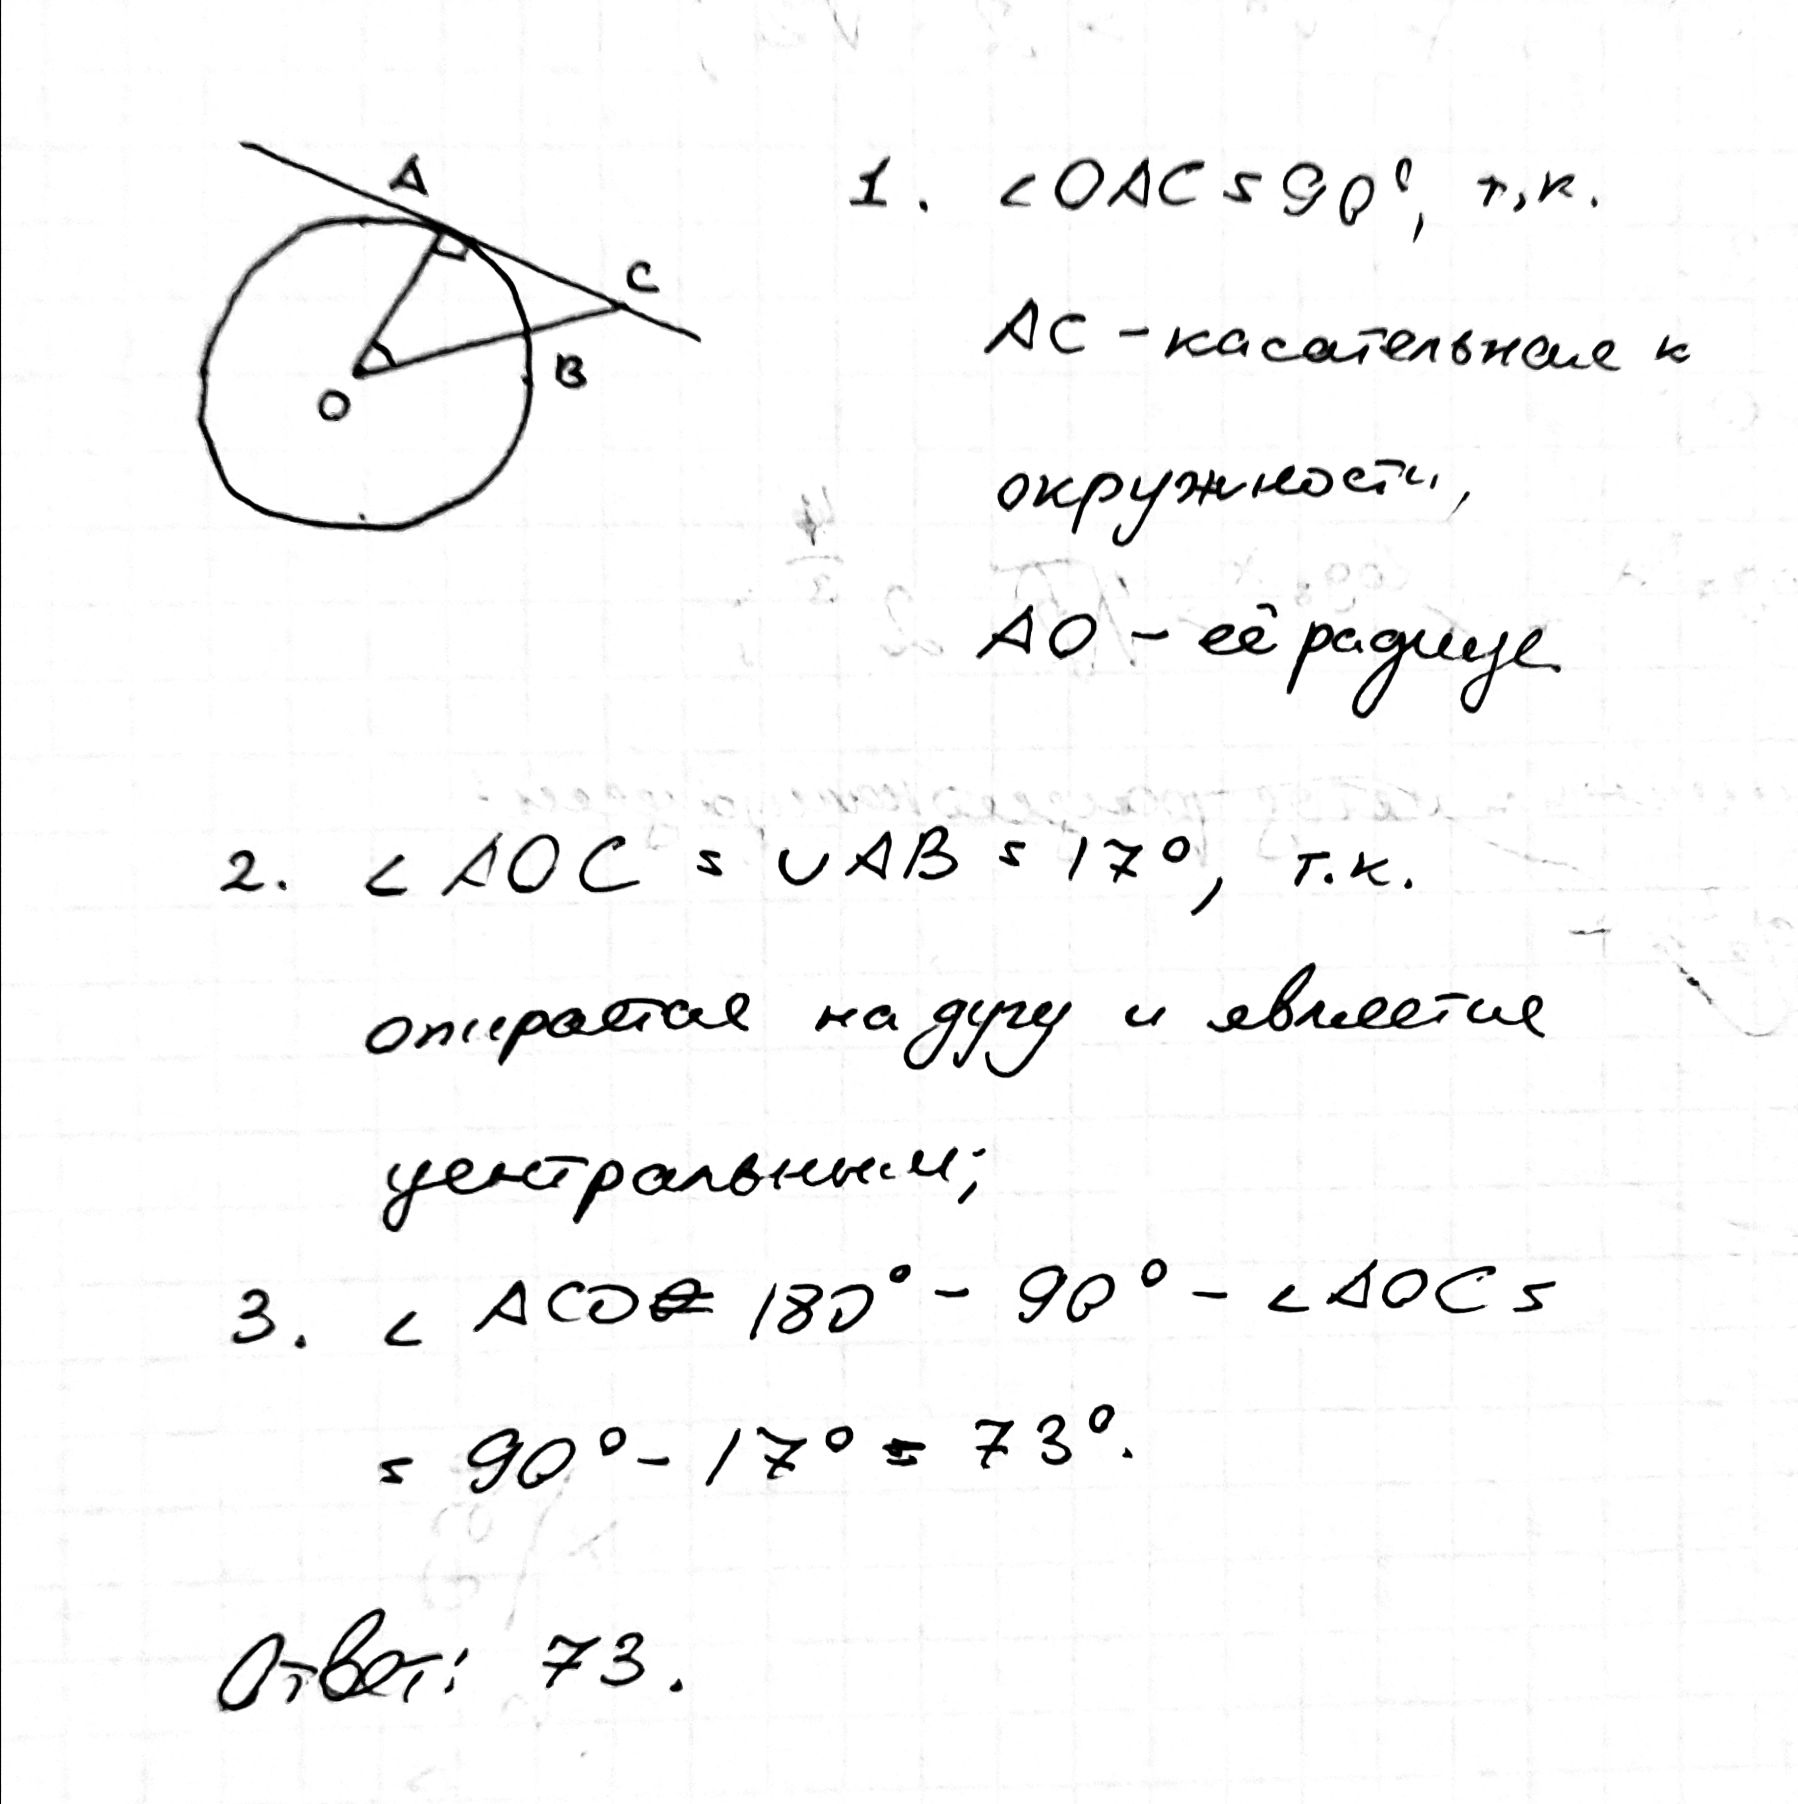 A
C
B
O
1. ∠OAC = 90°, т.к.
AC - касательная к
окружности,
AO - её радиус
2. ∠AOC = ∪AB = 17°, т.к.
опирается на дугу и является
центральным;
3. ∠ACO = 180° - 90° - ∠AOC =
= 90° - 17° = 73°.
Ответ: 73.